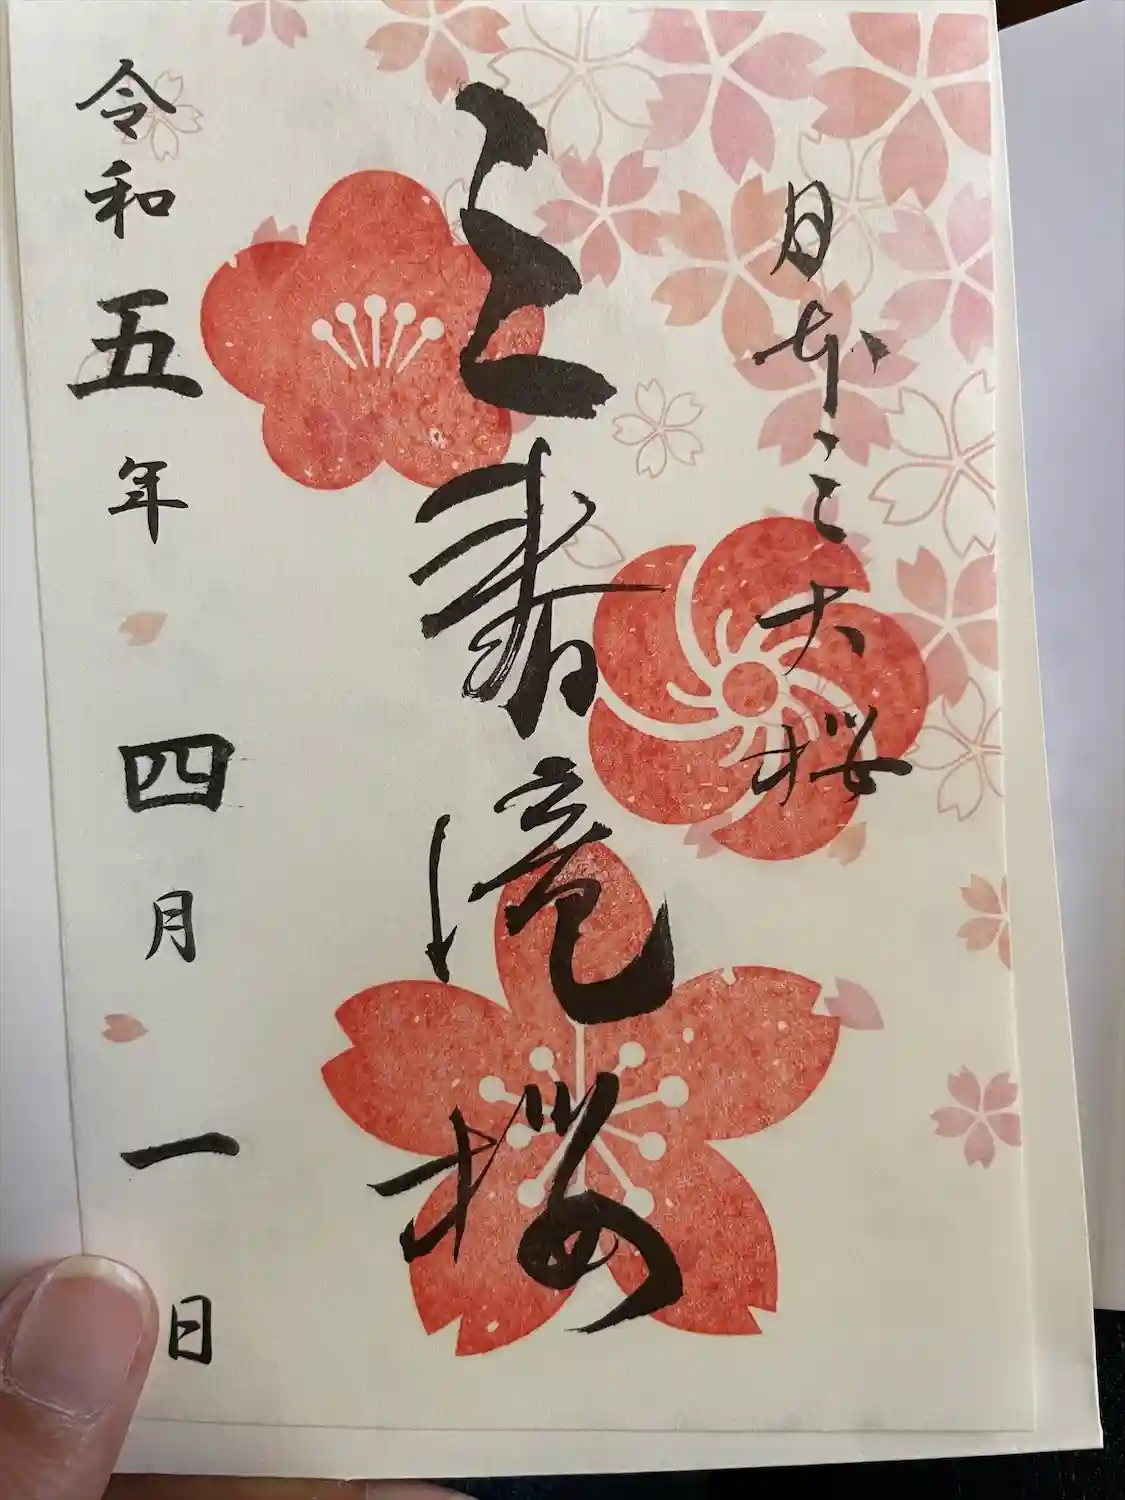 日本三大桜
三春滝桜
令和五年四月一日